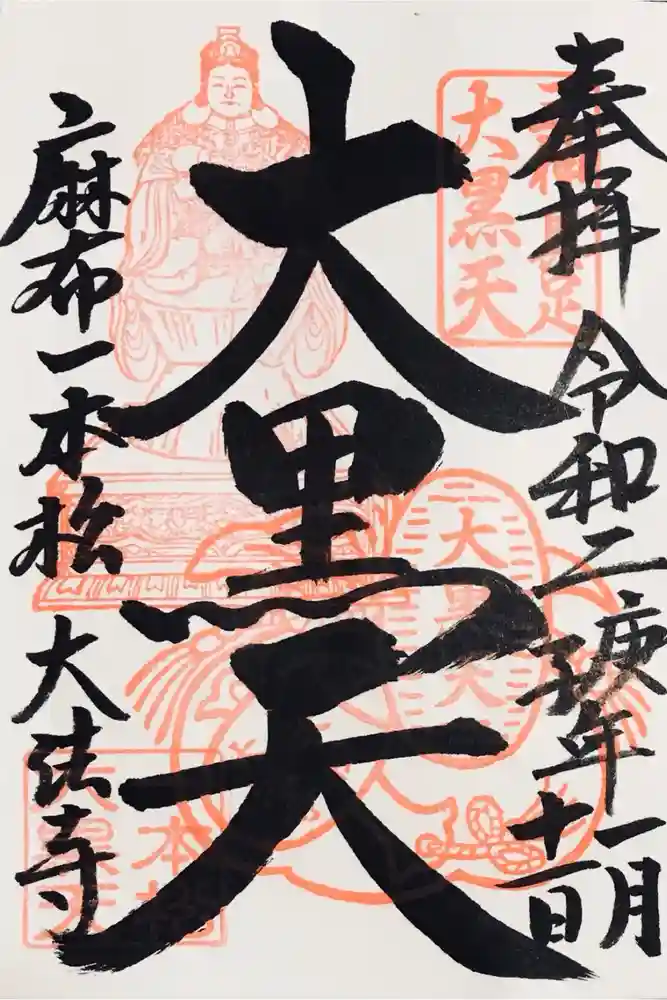 奉拝
令和二庚子年一月十一日
大黒天
麻布一本松 大法寺
大黒天
大黒天